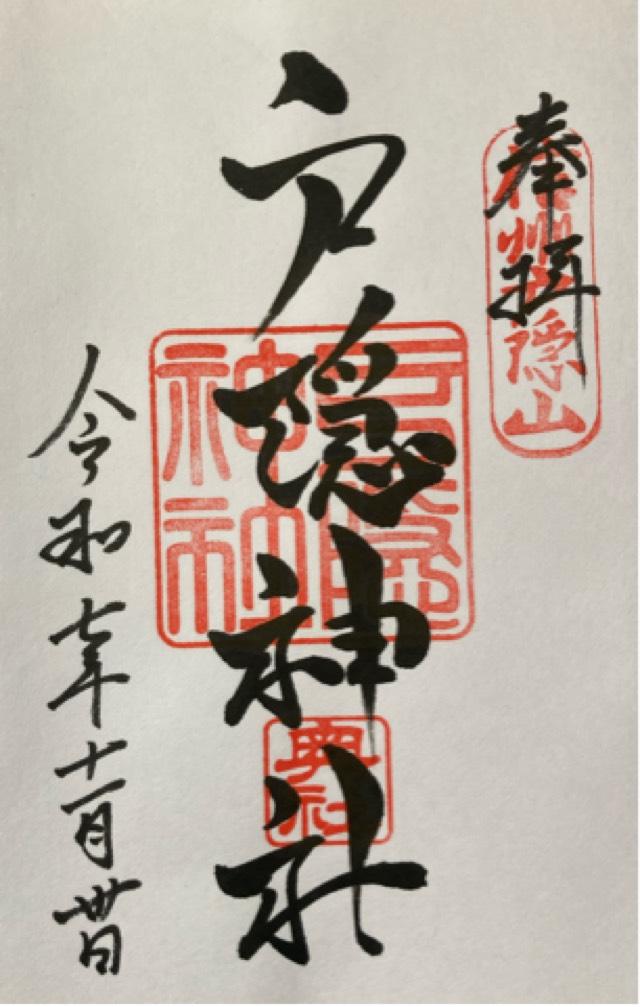 奉拝
信州戸隠山
戸隠神社
戸隠神社
奥社
令和七年十一月卅日